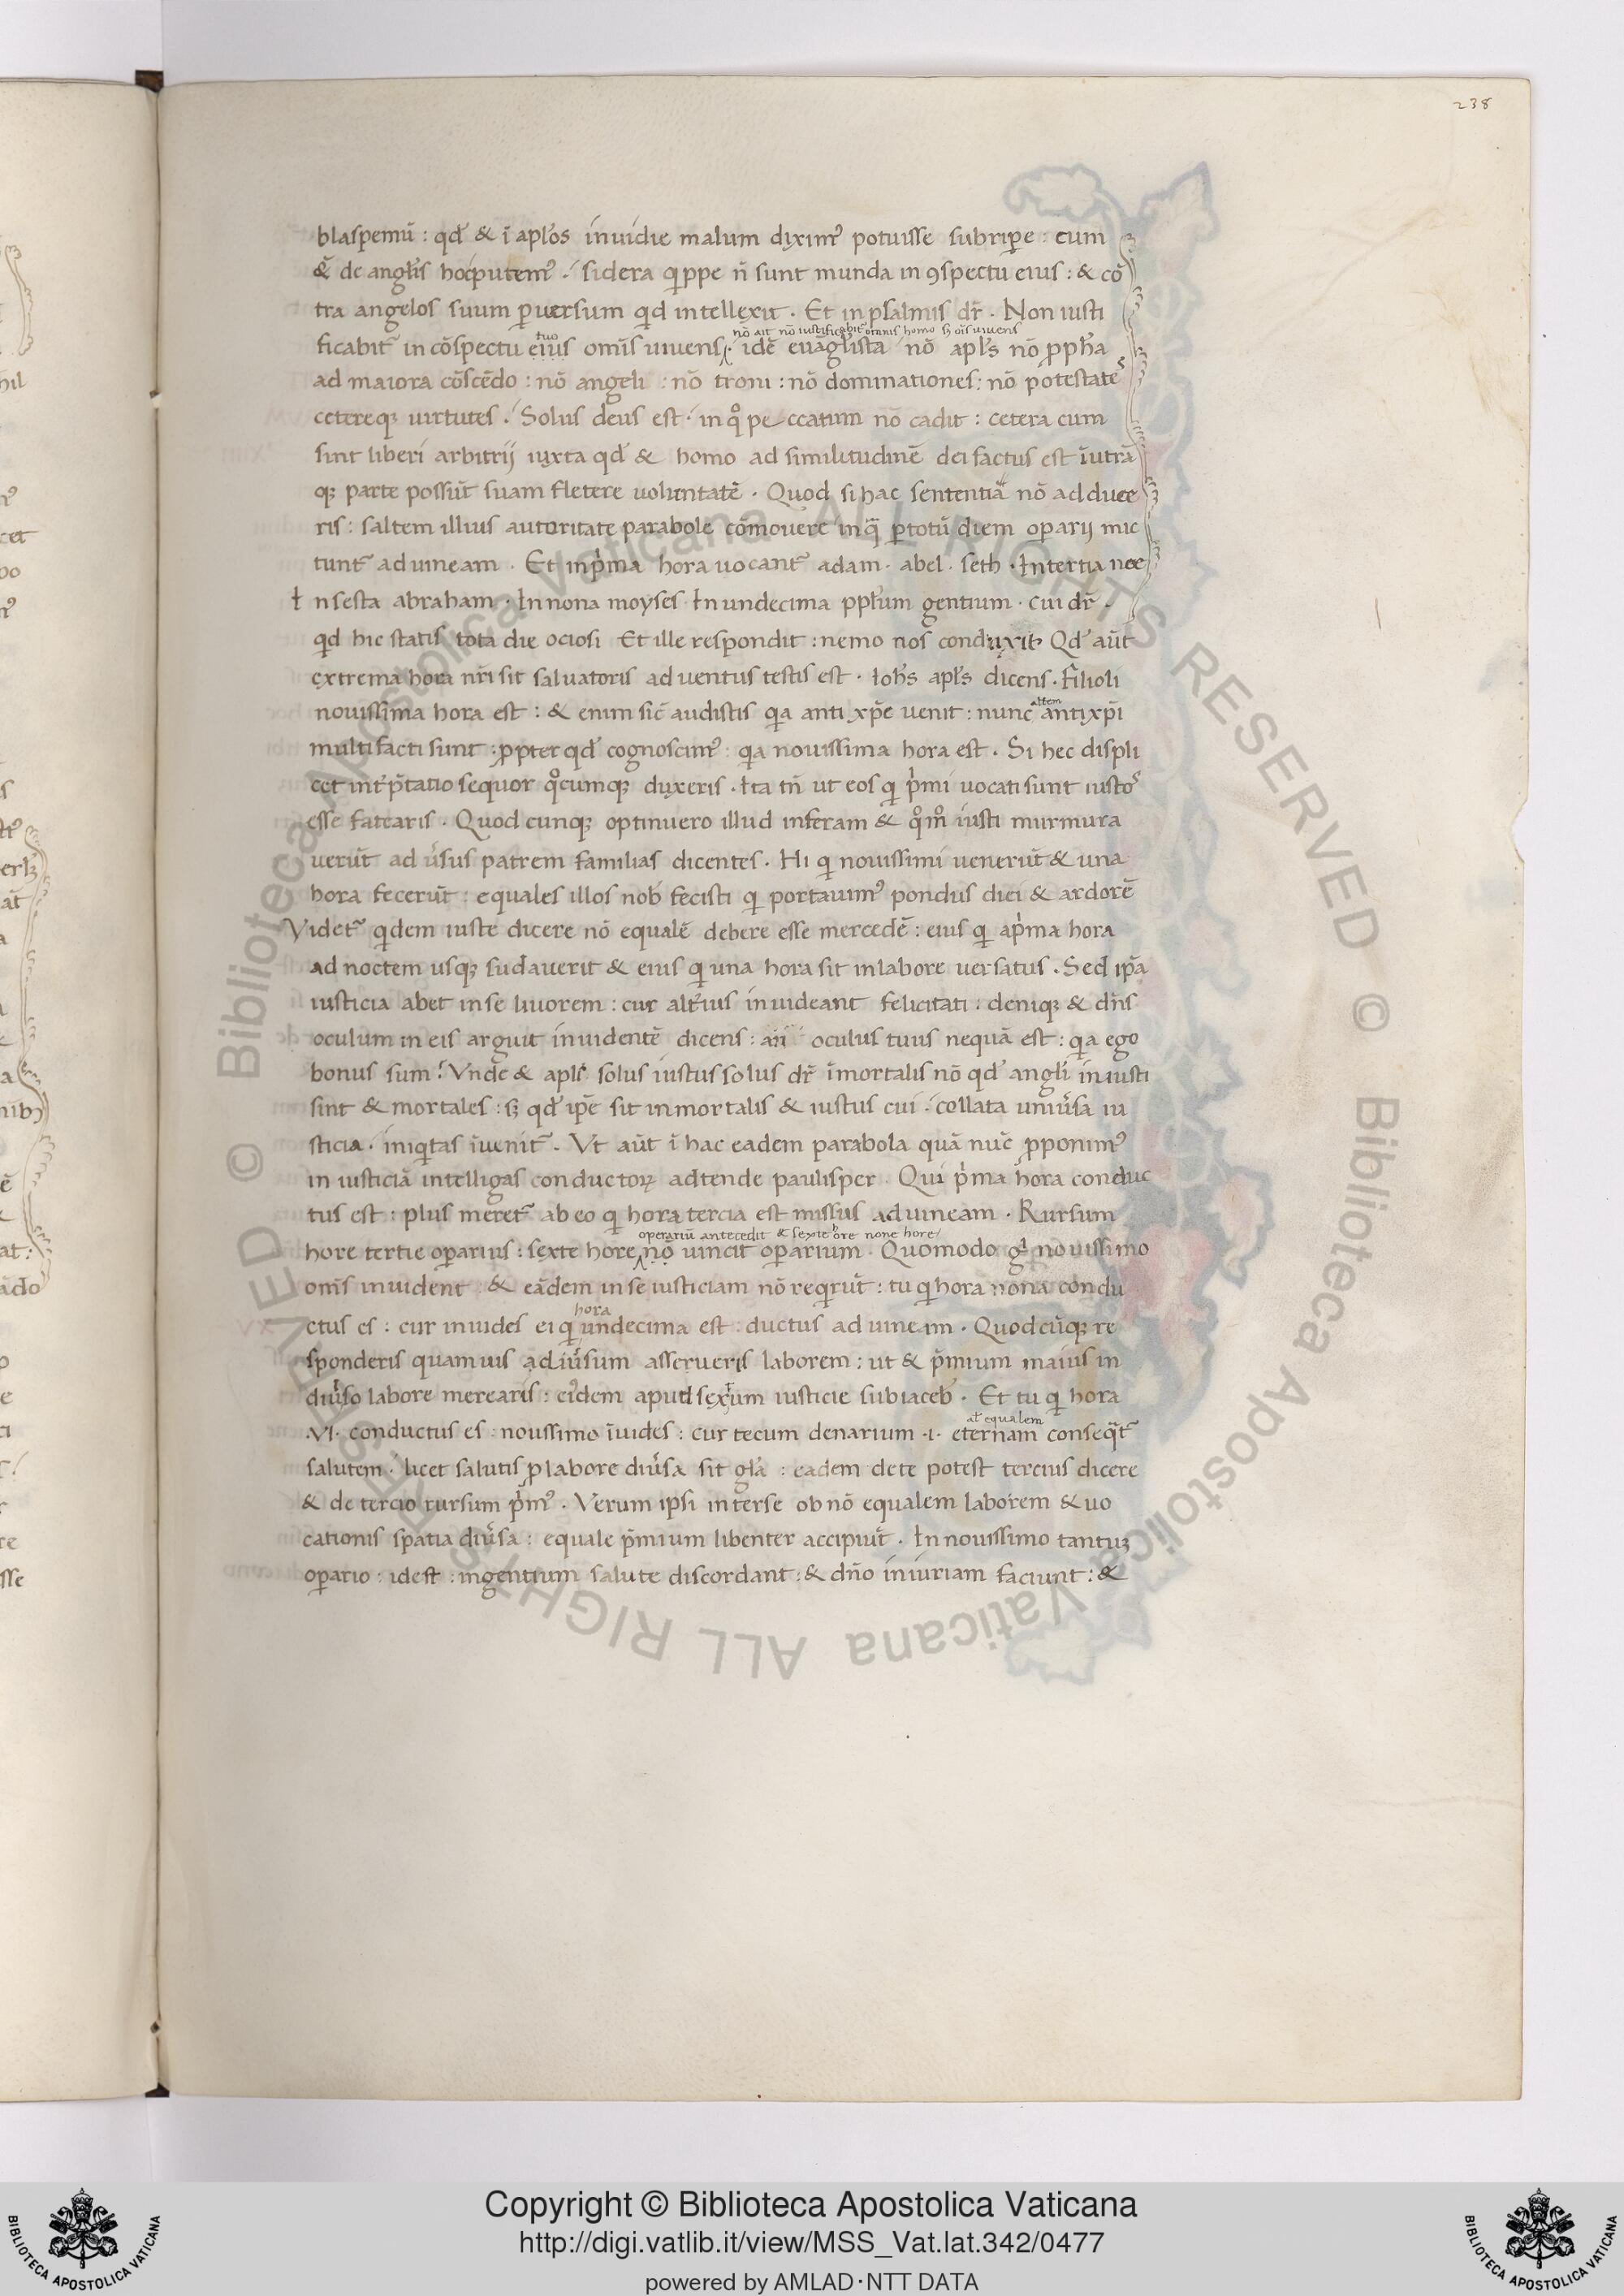 238
blaspemū : qd̄ & ī apl̄os inuidie malum dixim᷒ potuisse subripe : cum
& de angl̄is hoc putem᷒ . sidera qippe n̄ sunt munda in ꝯspectu eius : & cō
tra angelos suum puersum qid intellexit . Et in psalmis dr̄ . Non iusti
nō ait nō iustificabit᷒ omnis homo sꝫ oīs uiuens
tuo
ficabit᷒ in cōspectu eius omīs uiuens . idē euāgl̄ista nō apl̄s nō ꝓph̄a
ad maiora cōscēdo : nō angeli : nō troni : nō dominationes : nō potestate᷒
cetereqꝫ uirtutes . Solus deus est . in qͦ peccatum nō cadit : cetera cum
sint liberi arbitrij iuxta qd̄ & homo ad similitudinē dei factus est īutrā
qꝫ parte possūt suam fletere uoluntatē . Quod si hac sententiā nō adduce
ris : saltem illius autoritate parabole cōmouere inqͣ ꝑtotū diem oparij mic
tunt᷒ ad uineam . Et in pͥma hora uocant᷒ adam . abel . seth . In tertia noe
In sesta abraham . In nona moyses In undecima ppl̄um gentium . cui dr̄ .
qid hic statis tota die ociosi Et ille respondit : nemo nos conduxit Qd̄ aūt
extrema hora nr̄i sit saluatoris aduentus testis est . Ioh̄s apl̄s dicens . Filioli
nouissima hora est : & enim sic̄ audistis qia anti xp̄e uenit : nunc autem antixp̄i
multi facti sunt : ꝓpter qd̄ cognoscim᷒ : qia nouissima hora est . Si hec displi
cet int̄ꝑtatio sequor qͦcumqꝫ duxeris . Ita tn̄ ut eos qi pͥmi uocati sunt iusto᷒
esse fatearis . Quod cunqꝫ optinuero illud inferam & qͦmͦ iusti murmura
uerūt aduͥsus patrem familias dicentes . Hi qi nouissimi uenerūt & una
hora fecerūt : equales illos nob̄ fecisti qi portauim᷒ pondus diei & ardorē
Videt᷒ qidem iuste dicere nō equalē debere esse mercedē : eius qi a pͥma hora
ad noctem usqꝫ sudauerit & eius qi una hora sit in labore uersatus . Sed ip̄a
iusticia abet in se liuorem : cur alt̄ius inuideant felicitati : deniqꝫ & dn̄s
oculum in eis arguit inuidentē dicens : an oculus tuus nequā est : qia ego
bonus sum . Vnde & apl̄s solus iustus solus dr̄ īmortalis nō qd̄ angl̄i iniusti
sint & mortales : sꝫ qd̄ ip̄e sit inmortalis & iustus cui . collata uniuͥsa iu
sticia . iniqitas īuenit᷒ . Vt aūt ī hac eadem parabola quā nūc ꝓponim᷒
in iusticiā intelligas conductoꝝ adtende paulisper . Qui pͥma hora conduc
tus est : plus meret᷒ ab eo qi hora tercia est missus ad uineam . Rursum
operariū antecedit & sexte ore none hore
hore tertie oparius : sexte hore nō uincit oparium . Quomodo gͥ nouissimo
omīs inuident & eādem in se iusticiam nō reqirūt : tu qi hora nona condu
hora
ctus es : cur inuides ei qi undecima est : ductus ad uineam . Quodcūqꝫ re
sponderis quamuis a diuͥsum asserueris laborem : ut & p̄mium maius in
diuͥso labore merearis : eidem apud sextum iusticie subiaceb᷒ . Et tu qi hora
al̄ equalem
.VI. conductus es : nouissimo īuides : cur tecum denarium .i. eternam conseqͣt᷒
salutem . licet salutis ꝓ labore diuͥsa sit gl̄a : eadem de te potest tercius dicere
& de tercio rursum pͥm᷒ . Verum ipsi inter se ob nō equalem laborem & uo
cationis spatia diuͥsa : equale p̄mium libenter accipiūt . In nouissimo tantuꝫ
opario : idest : in gentium salute discordant : & dn̄o iniuriam faciunt : &
© Biblioteca Apostolica Vaticana ALL RIGHTS RESERVED © Biblioteca Apostolica Vaticana ALL RIGHTS RESERVED
Copyright © Biblioteca Apostolica Vaticana
http://digi.vatlib.it/view/MSS_Vat.lat.342/0477
powered by AMLAD·NTT DATA
BIBLIOTECA APOSTOLICA VATICANA
BIBLIOTECA APOSTOLICA VATICANA